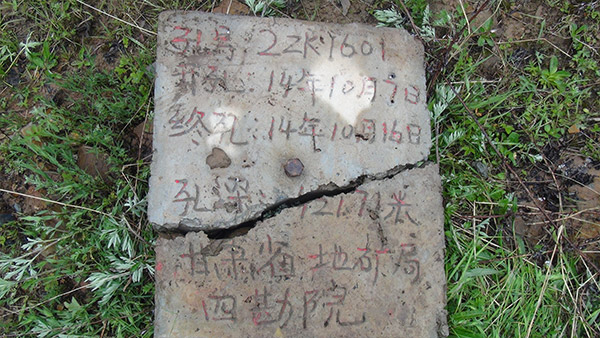 孔号:2ZK1601
开孔:14年10月7日
终孔:14年10月16日
孔深:121.71米
甘肃省地矿局
四勘院